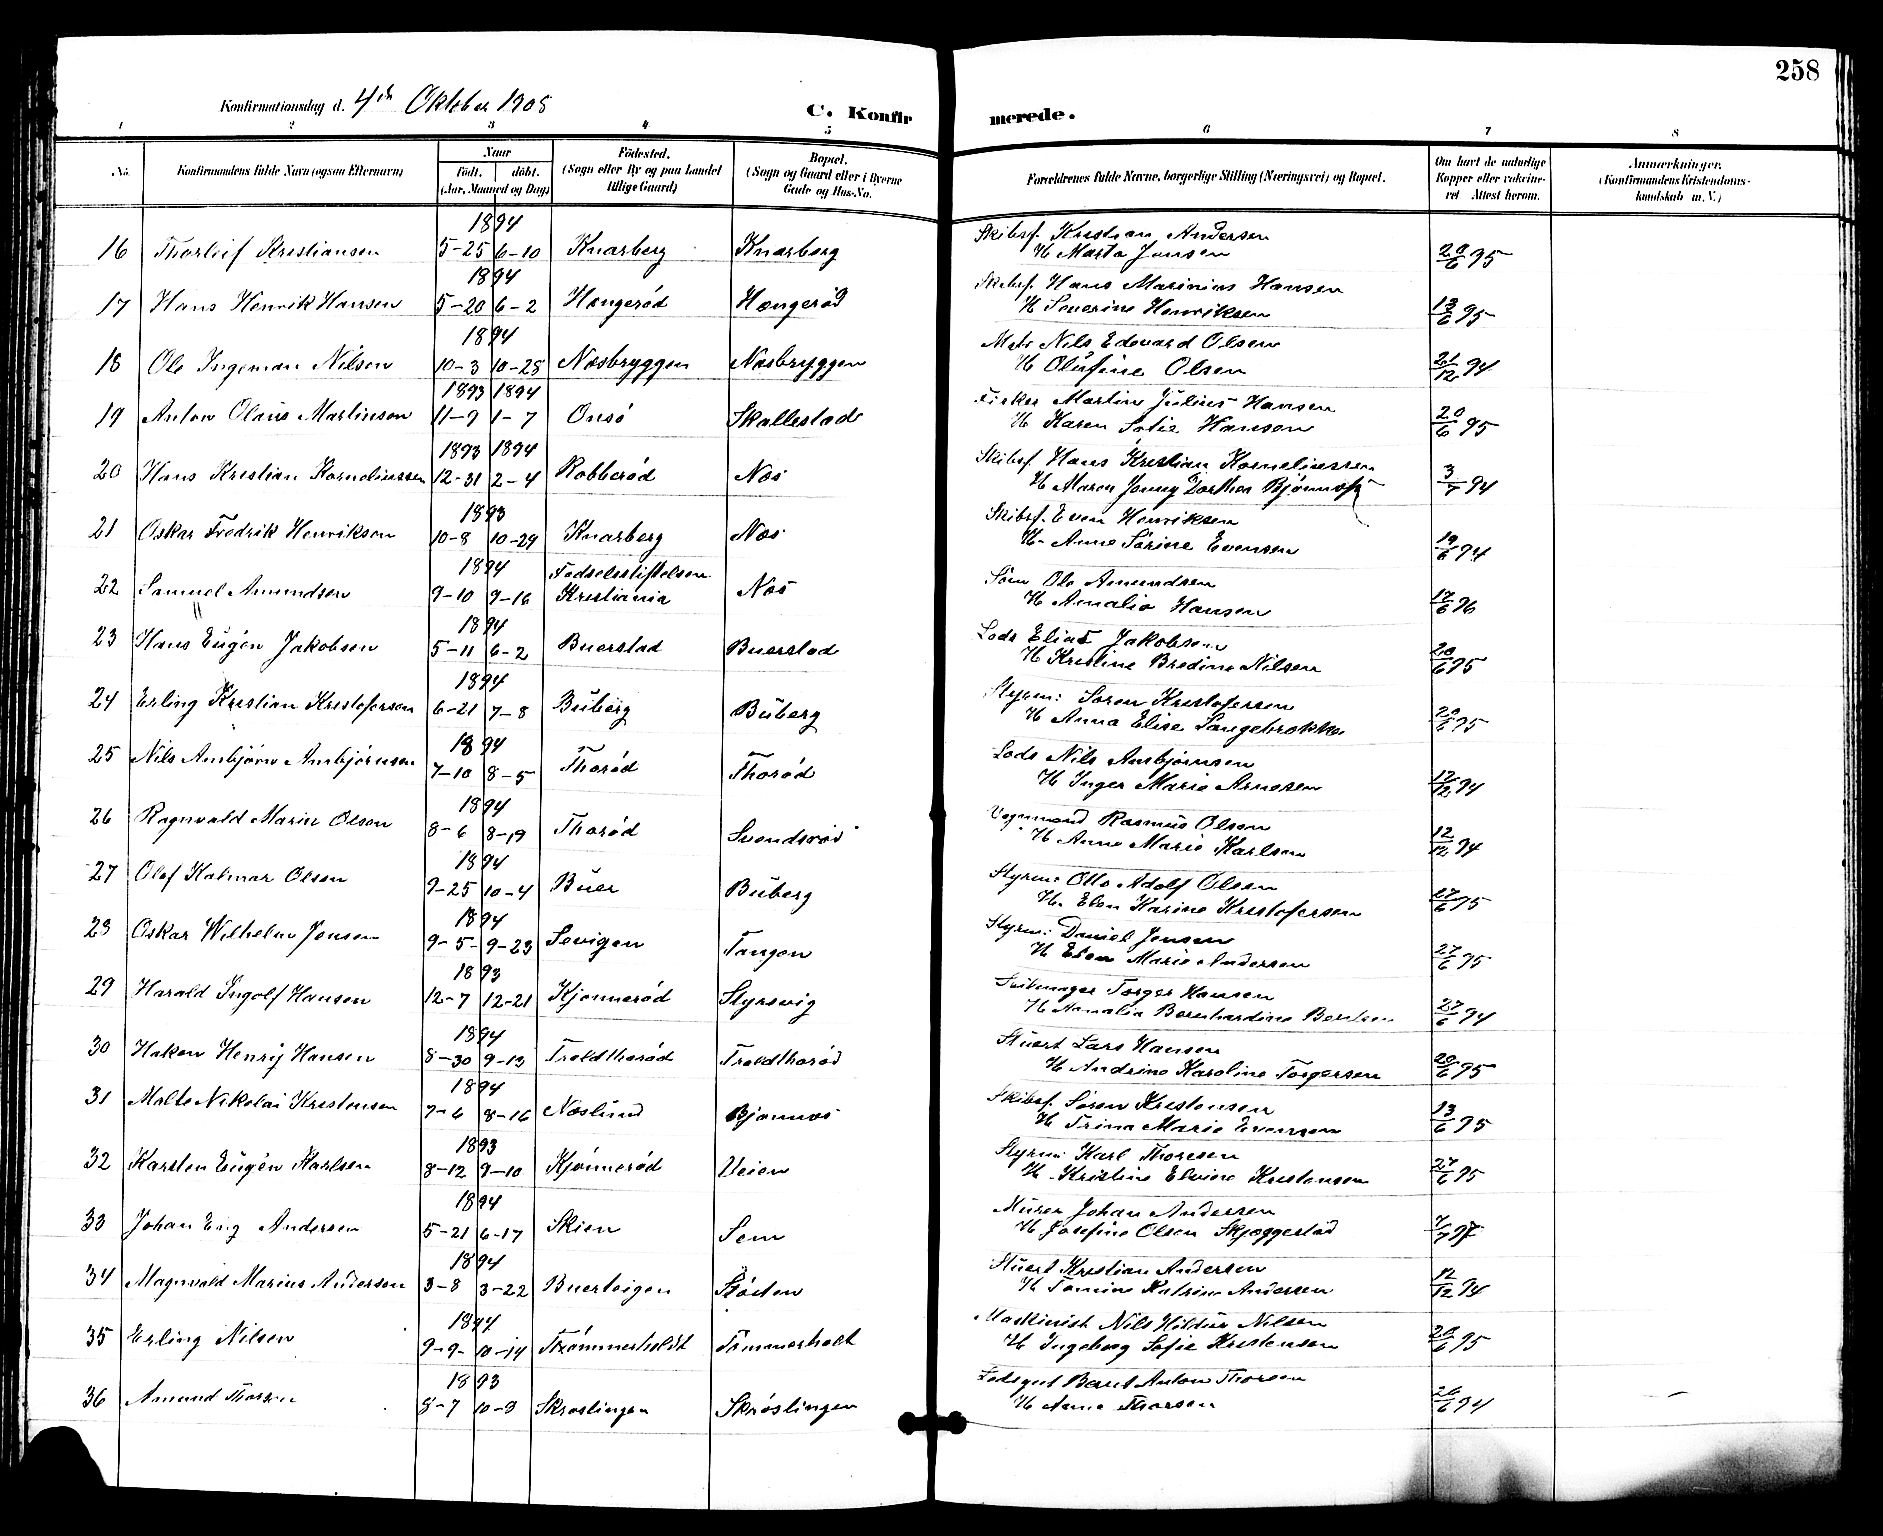 258
Konfirmationsdag d. 4de Oktober 1908
C. Konfirmerede.
1 2 3 4 5 6 7 8
No. | Konfirmandens fulde Navn (ogsaa Efternavn) | Naar Födt. döbt. (Aar, Maaned og Dag) | Födested. (Sogn eller By og paa Landet tillige Gaard) | Bopæl. (Sogn og Gaard eller i Byerne Gade og Hus-No. | Forældrenes fulde Navne, borgerlige Stilling (Næringsvei) og Bopæl. | Om havt de naturlige Kopper eller vaccineret Attest herom. | Anmærkninger. (Konfirmandens Kristendomskundskab m. V.)
1894 Skibsf. Kristian Andersen
16 Thorleif Kristiansen 5-25 6-10 Knarberg Knarberg H Marta Jensen 20/6 95
1894 Skibsf. Hans Marinius Hansen
17 Hans Henrik Hansen 5-20 6-2 Hængerød Hængerød H Severine Henriksen 13/6 95
1894 Matr Nils Edevard Olsen
18 Ole Ingeman Nilsen 10-3 10-28 Næsbryggen Næsbryggen H Olufine Olsen 21/12 94
1893 1894 Fisker Martin Julius Hansen
19 Anton Olaus Martinsen 11-9 1-7 Onsö Skallestad H Karen Sofie Hansen 20/6 95
1893 1894 Skibsf. Hans Kristian Korneliussen
20 Hans Kristian Korneliussen 12-31 2-4 Robberød Nes H Maren Jenny Dorthea Bjønnes 3/7 94
1893 Skibsf. Even Henriksen
21 Oskar Fredrik Henriksen 10-8 10-29 Knarberg Nes H Anne Sörine Evensen 19/6 94
1894 Födselsstiftelsen Söm Ole Amundsen
22 Samuel Amundsen 9-10 9-16 Kristiania Nes H Amalie Hansen 17/6 96
1894 Lods Elias Jakobsen
23 Hans Eugén Jakobsen 5-11 6-2 Buerstad Buerstad H Kristine Bredine Nilsen 20/6 95
1894 Styrm: Sören Kristofersen
24 Erling Kristian Kristofersen 6-21 7-8 Buberg Buberg H Anna Elise Langebrekke 20/6 95
1894 Lods Nils Ansbjørnsen
25 Nils Ansbjørn Ansbjørnsen 7-10 8-5 Thorød Thorød H Inger Marie Arnesen 12/12 94
1894 Vognmand Rasmus Olsen
26 Ragnvald Marin Olsen 8-6 8-19 Thorød Svendsrød H Anne Marie Karlsen 12/12 94
1894 Styrm: Otto Adolf Olsen
27 Olaf Kalmar Olsen 9-25 10-4 Buer Buberg H. Elen Karine Kristofersen 27/6 95
1894 Styrm: Daniel Jensen
28 Oskar Wilhelm Jensen 9-5 9-23 Sevigen Tangen H Elen Marie Andersen 27/6 95
1893 Torger Hansen
29 Harald Ingolf Hansen 12-7 12-21 Kjønnerød Styrsvig H Amalia Bernhardine Berntsen 27/6 94
1894 Stuert Lars Hansen
30 Hakon Henry Hansen 8-30 9-13 Troldthorød Troldthorød H Andrine Karoline Torgersen 20/6 95
1894 Skibsf. Sören Kristensen
31 Malte Nikolai Kristensen 7-6 8-16 Næslund Bjønnes H Trina Marie Evensen 13/6 95
1893 Styrm: Karl Thoresen
32 Karsten Eugén Karlsen 8-12 9-10 Kjønnerød Veien H Kristine Elvine Kristensen 27/6 95
1894 Murer Johan Andersen
33 Johan Eng Andersen 5-21 6-17 Skien Sem H Josefine Olsen Skjeggestad 7/7 97
1894 Stuert Kristian Andersen
34 Magnvald Marius Andersen 3-8 3-22 Buerteigen Løsten H Tomine Katrine Andersen 12/12 94
1894 Maskinist Nils Hildur Nilsen
35 Erling Nilsen 9-9 10-14 Trømmerholdt Tømmerholt H Ingeborg Sofie Kristensen 20/6 95
1893 Lodsgut Bernt Anton Thorsen
36 Amund Thorsen 8-7 10-3 Skrøslingen Skrøslingen H Anne Thorsen 26/6 94